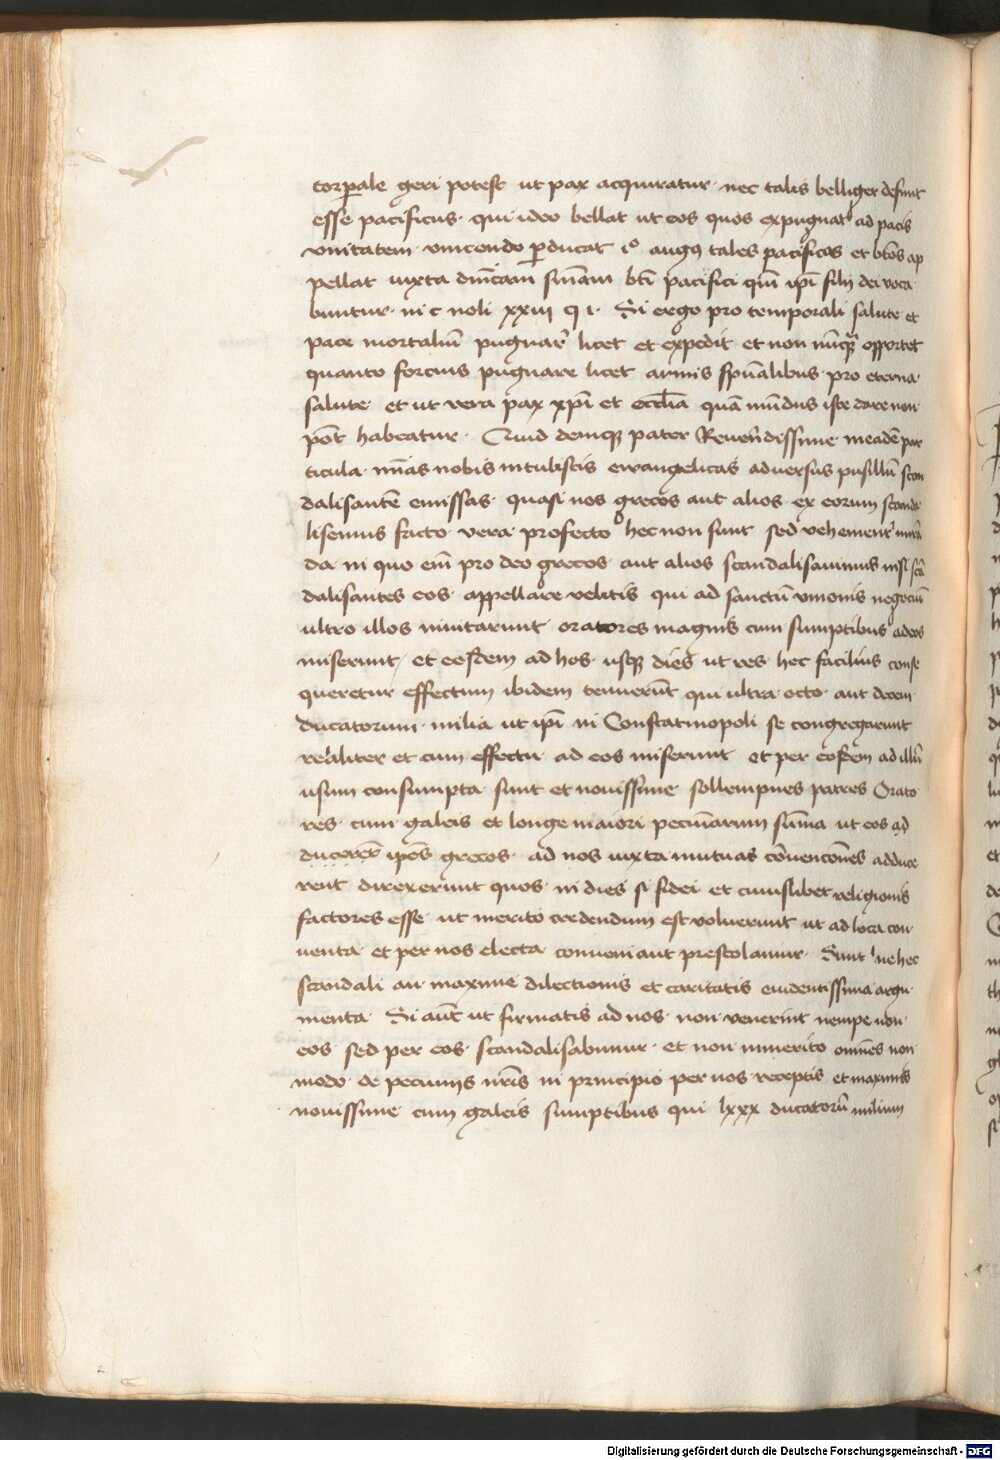 corꝑale geri potest ut pax acquiratur · nec talis belliger desunt
esse pacificus · qui ideo bellat ut eos quos expugnat ad pacis
vnitatem · vincendo ꝑducat iº augꝰ tales pacificos et btōs ap
pellat iuxta dnīcam snīam btī pacifici qm̄ ipī filij dei voca
buntur · in c noli xxiii q i · Si ergo pro temporali salute et
pace mortaliū pugnar̄ licet et expedit et non nūqȝ opportet
quanto forcius pugnare licet armis spūalibus · pro eterna
salute · et ut vera pax xp̄i et eccl̄ia quā mūdus iste dare non
pōt habeatur · Quid demqȝ pater Reuerēdissime in eadē par
ticula mīas nobis intulistis ewangelicas aduersus pusillū scan
dalisantē emissas · quasi nos grecos aut alios · ex eorum scanda
lisemus facto · vera profecto hec non sunt sed vehementˀ mirā
da in quo em̄ pro deo grecos · aut alios scandalisauimus nisi scā
dalisantes eos · appellare velitis qui ad sanctū vnionis negociū
ultro illos inuitarunt · oratores magnis cum sumptibus ad eos
miserunt / et eosdem ad hos · usqȝ dies ut res · hec facilius conse
queretur effectum ibidem tenuerūt qui ultra · octo · aut decem
ducatorum · milia ut ipī in Constatinopoli se congregarunt
realiter et cum effectu · ad eos miserunt et per eosdem ad illū
usum consumpta sunt et nouissime sollempnes patres Orato
res · cum galeis et longe maiori pecuniarum sum̄a ut eos ad
ducerēt ipōs grecos · ad nos iuxta mutuas cōuencōnes adduce
rent direxerunt quos · in dies si fidei et cuiuslibet religionis
factores esse · ut merito credendum est voluerunt ut ad loca con
uenta · et per nos electa conueniant prestolamur · Sunt ne hec
scandali an · maxime dilectionis et caritatis euidentissima argu
menta · Si aūt ut firmatis ad nos · non venerint nempe non
eos · sed per eos · scandalisabimur · et non inmerito omnes non
modo · de pecunijs nr̄is in principio per nos · receptis et maximis
nouissime cum galeis sumptibus qui lxxx ducatorū milium
Digitalisierung gefördert durch die Deutsche Forschungsgemeinschaft - DFG